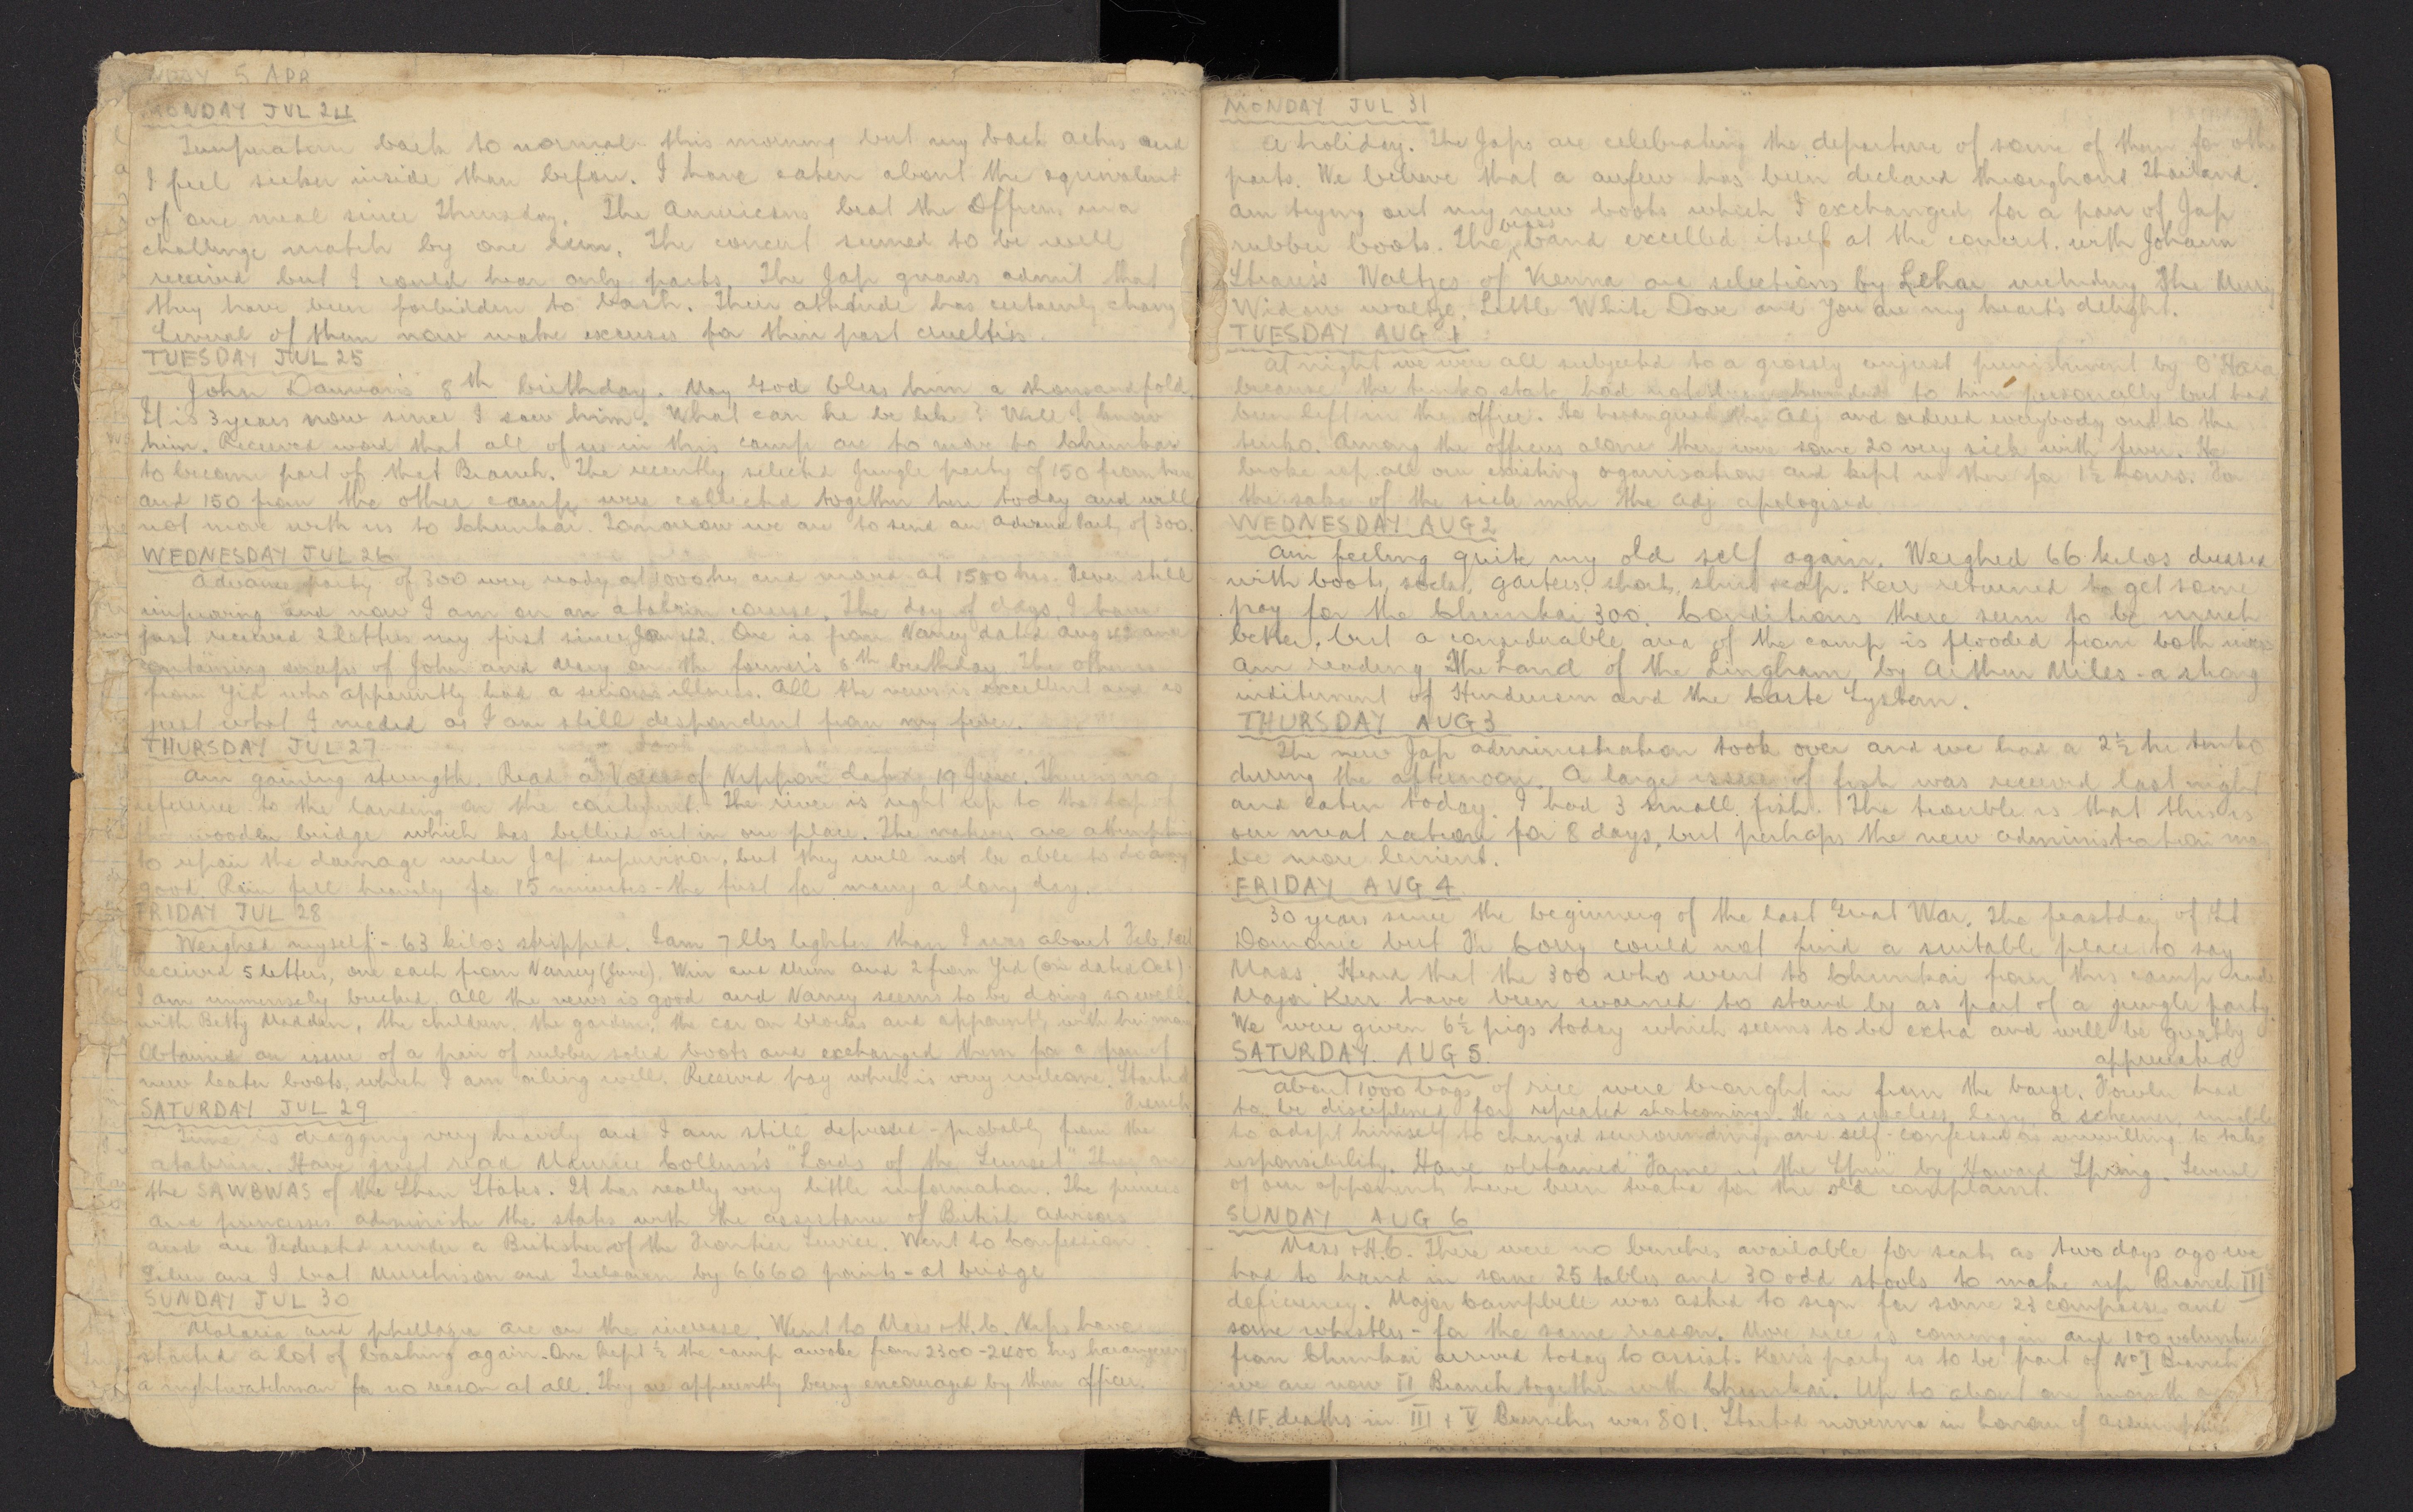 5 APR
MONDAY JUL 24
Temperature back to normal this morning but my back aches and
I feel sicker inside than before. I have eaten about the equivalent
of one meal since Thursday. The Americans beat the Officers in a
challenge match by one run. The concert seemed to be well
received but I could hear only parts. The Jap guards admit that
they have been forbidden to bash. Their attitude has certainly chang
Several of them now make excuses for their past cruelties.
TUESDAY JUL 25
John 8th birthday. May God bless him a thousand fold.
It is 3 years now since I saw him. What can he be like? Will I know
him. Received word that all of us in this camp are to move to Chunkai
to become part of that Branch. The recently selected Jungle party of 150 from here
and 150 from the other camps were collected together here today and will
not move with us to Chunkai. Tomorrow we are to send an Advance Party of 300.
WEDNESDAY JUL 26
Advance party of 300 were ready at 1000 hrs and moved at 1500 hrs. Fever still
improving and now I am on an atabrin course. The day of days, I have
just received 2 letters my first since Jan 42. One is from Nancy dated Aug 42 and
containing snaps of John and Mary on the former's 6th birthday. The other is
from Yid who apparently had a serious illness. All the news is excellent and is
just what I needed as I am still despondent from my fever.
THURSDAY JUL 27
Am gaining strength. Read a "Voice of Nippon" dated 19 June. There is no
reference to the landing on the continent. The river is right up to the top of
the wooden bridge which has bellied out in one place. The natives are attempting
to repair the damage under Jap supervision, but they will not be able to do any
good. Rain fell heavily for 15 minutes - the first for many a long day.
FRIDAY JUL 28
Weighed myself - 63 kilos stripped. I am 7 lbs lighter than I was about Feb. last
Received 5 letters, one each from Nancy (June), Win and Mum and 2 from Yid (one dated Oct)
I am immensely bucked. All the news is good and Nancy seems to be doing so well
with Betty Madden, the children, the garden, the car on blocks and apparently with her
Obtained an issue of a pair of rubber soled boots and exchanged them for a pair of
new leather boots, which I am oiling well. Received pay which is very welcome. Started
French
SATURDAY JUL 29
Time is dragging very heavily and I am still depressed - probably from the
atabrin. Have just read Maurice Collins's "Lords of the Sunset" These are
the SAWBWAS of the Shan States. It has really very little information. The princes
and princesses administer the states with the assistance of British Advisors
and are Federated under a Britisher of the Frontier Service. Went to Confession
and I beat Murchison and by 6660 points - at bridge
SUNDAY JUL 30
Malaria and phellagra are on the increase. Went to Mass & H.C. Nips have
started a lot of bashing again. One kept ½ the camp awake from 2300-2400 hrs haranguing
a nightwatchman for no reason at all. They are apparently being encouraged by their officer.
MONDAY JUL 31
A holiday. The Japs are celebrating the departure of some of them for other
parts. We believe that a curfew has been declared throughout Thailand.
Am trying out my new boots which I exchanged for a pair of Jap
rubber boots. The brass band excelled itself at the concert. with Johann
Strauss's Waltzes of Vienna and selections by Lehar including The Merry
Widow waltze, Little White Dove and You are my heart's delight.
TUESDAY AUG 1
At night we were all subjected to a grossly unjust punishment by O'Hara
because the tenko state had not been handed to him personally but had
been left in the office. He harangued the Adj and ordered everybody out to the
tenko. Among the officers alone there were some 20 very sick with fever. He
broke up all our existing organisation and kept us there for 1½ hours. For
the sake of the sick men the Adj apologised
WEDNESDAY AUG 2
Am feeling quite my old self again. Weighed 66 kilos dressed
with boots, socks, gaiters, shorts, shirt & cap. Kerr returned to get some
pay for the Chunkai 300. Conditions there seem to be much
better, but a considerable area of the camp is flooded from both
Am reading The Land of the Lingham, by Arthur Miles - a strong
inditement of Hinduism and the Caste System.
THURSDAY AUG 3
The new Jap administration took over and we had a 2½ hr tenko
during the afternoon. A large issue of fish was received last night
and eaten today. I had 3 small fish. The trouble is that this is
our meat ration for 8 days, but perhaps the new administration may
be more lenient.
FRIDAY AUG 4
30 years since the beginning of the last Great War. The feastday of St
Domonic but Fr Corry could not find a suitable place to say
Mass. Heard that the 300 who went to Chunkai from this camp under
Major Kerr have been warned to stand by as part of a jungle party.
We were given 6½ pigs today which seems to be extra and will be greatly
appreciated
SATURDAY AUG 5
About 1000 bags of rice were brought in from the barge. Fowler had
to be disciplined for repeated shortcomings. He is useless, lazy, a schemer, unable
to adapt himself to changed surroundings and self-confessed as unwilling to take
responsibility. Have obtained "Fame is the Spur" by Howard Spring. Several
of our opponents have been treated for the old complaint.
SUNDAY AUG 6
Mass & H.C. There were no benches available for seats as two days ago we
had to hand in some 25 tables and 30 odd stools to make up Branch III
deficiency. Major Campbell was asked to sign for some 23 compasses and
some whistles - for the same reason. More rice is coming in and 100 volunteers
from Chunkai arrived today to assist. Kerr's party is to be part of No I Branch
we are now II Branch together with Chunkai. Up to about one month ago
AIF deaths in III & V Branches was 801. Started novenna in honour of Assumption